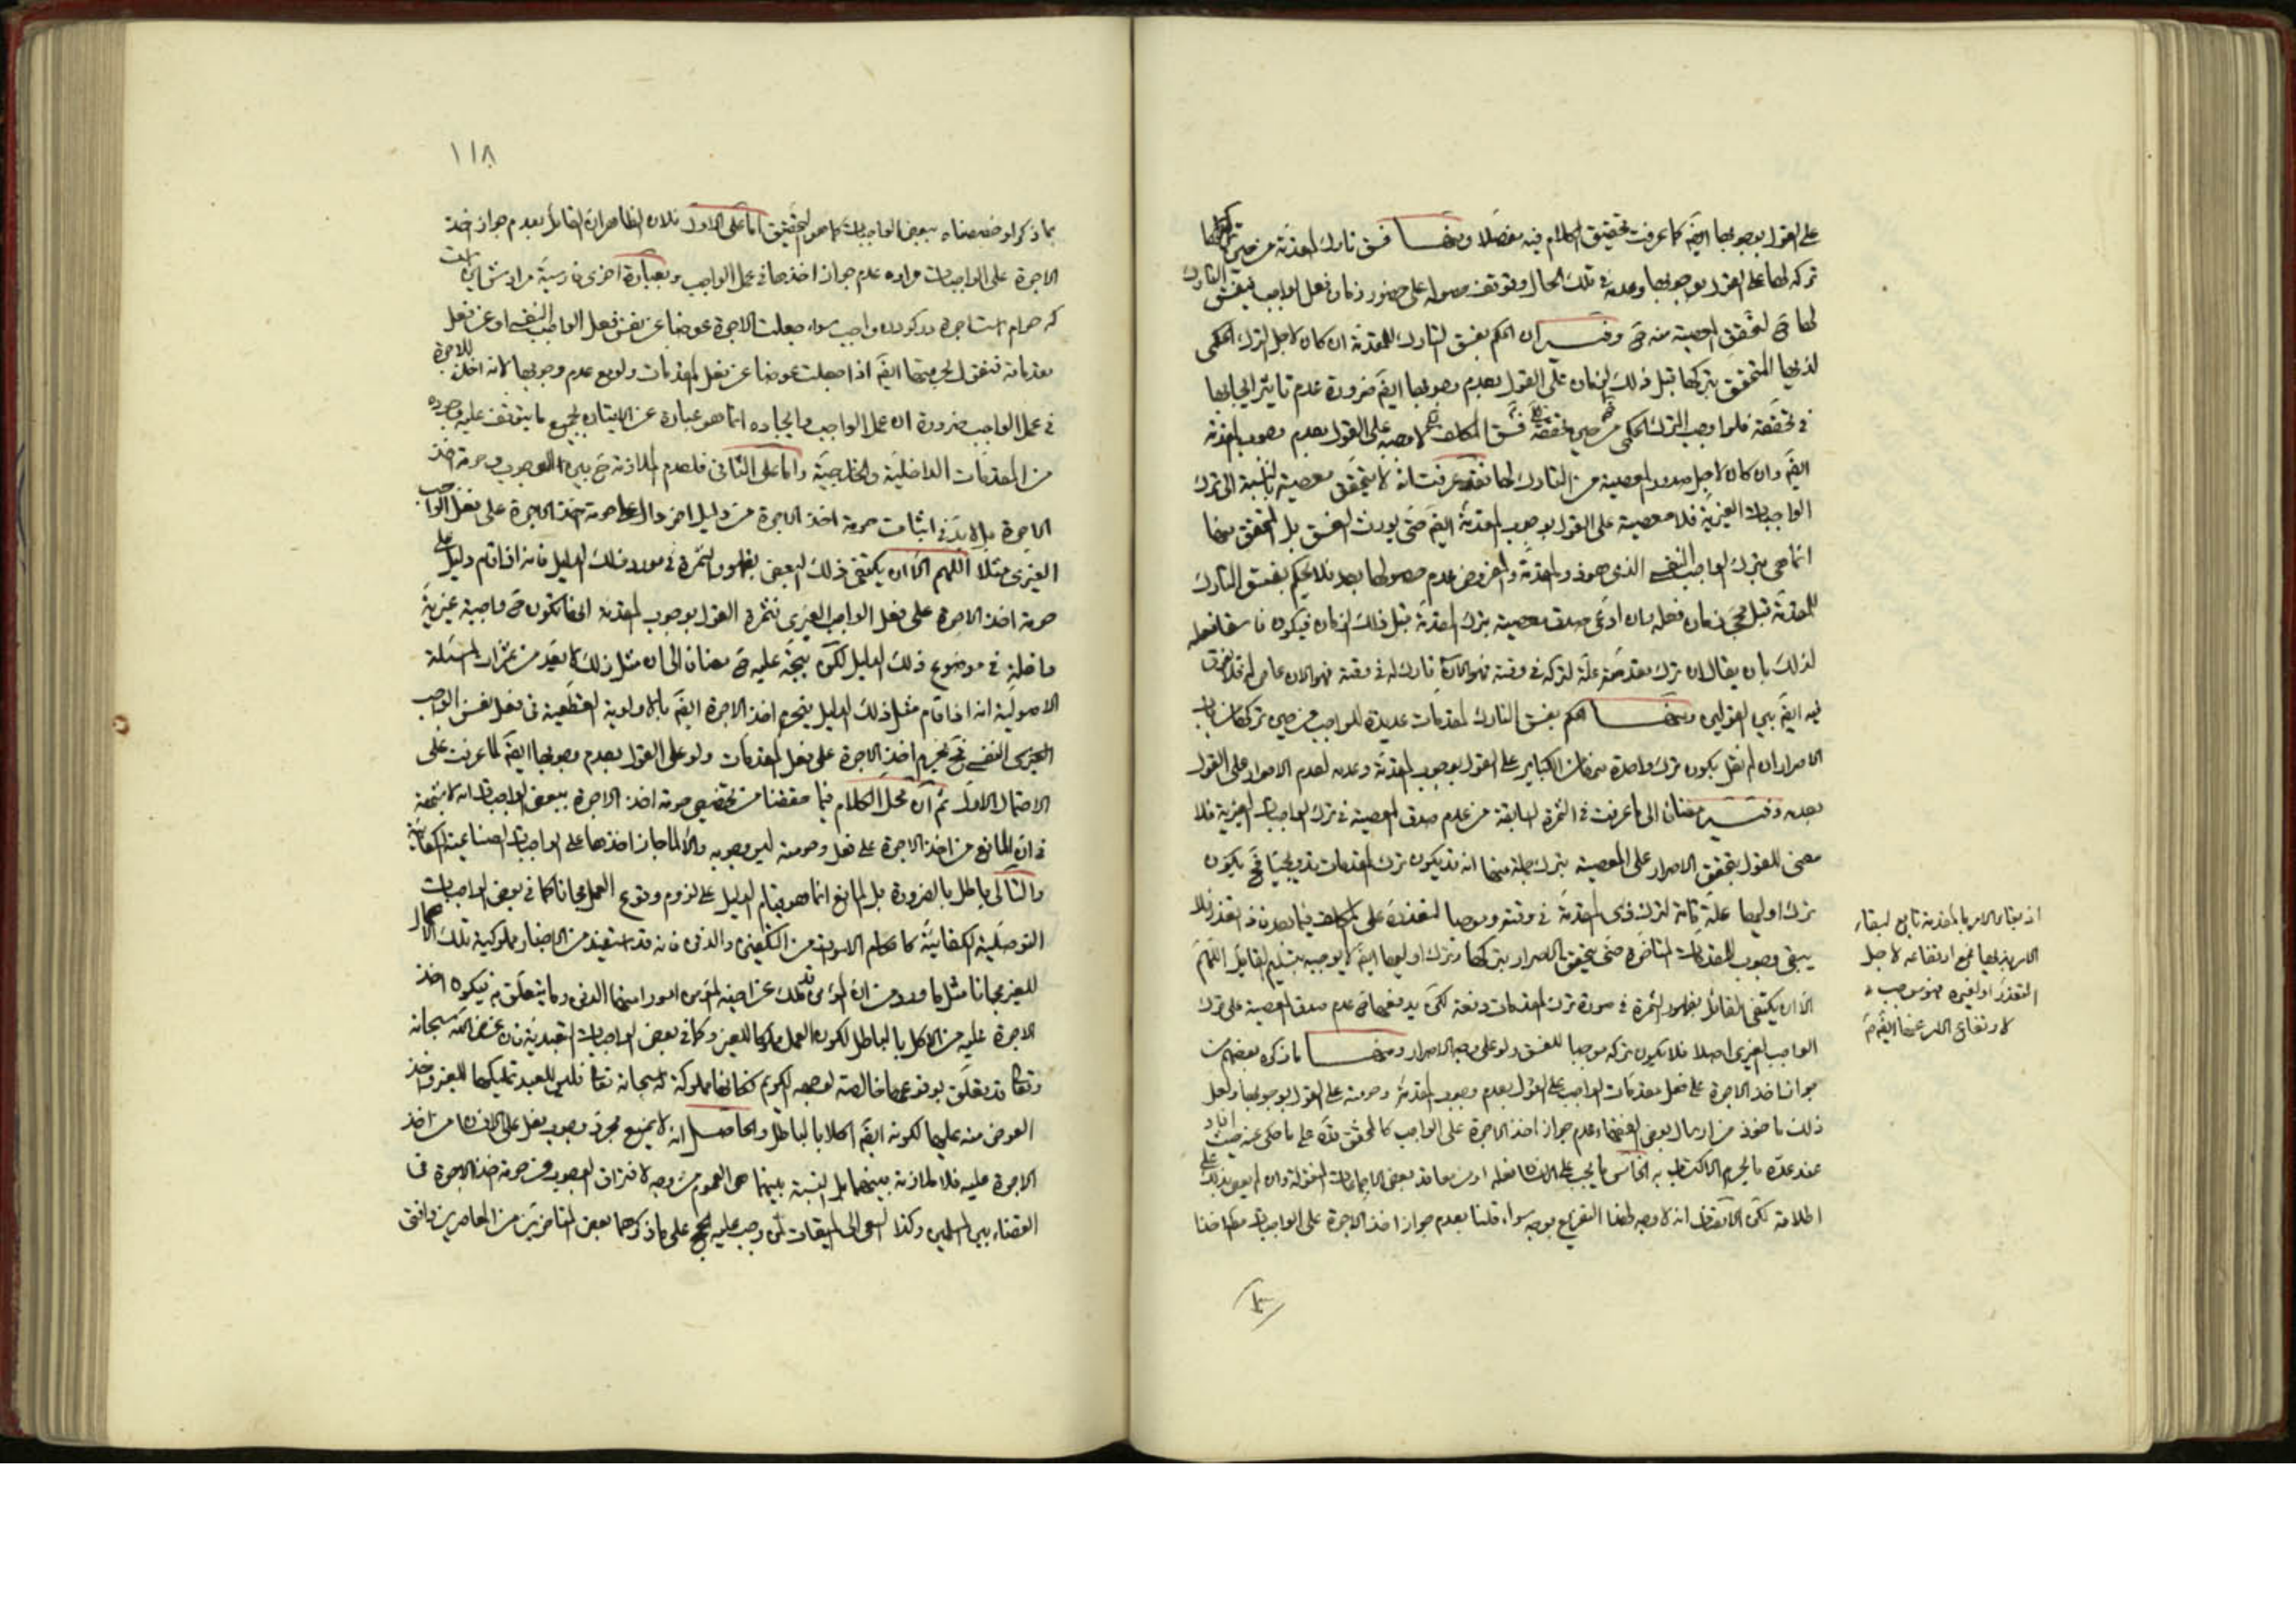 على القول بوجوبها ايضا كما عرفت تحقيق الكلام فيه مفصلا ومنها فسق تارك المقدمة من حين تركها
تركه لها على القول بوجوبها وعدمه في تلك الحال وتوقف حصوله على حضور زمان فعل الواجب فيفسق التارك
لها ح لتحقق المعصية منه ح وفيه ان الحكم بفسق التارك للمقدمة ان كان لاجل الترك الحكمي
لذيها المتحقق بتركها قبل ذلك الزمان على القول بعدم وجوبها ايضا ضرورة عدم تاثير ايجابها
في تحققه فلو اوجب الترك الحكمي من حين تحققه فسق المكلف لاوجبه على القول بعدم وجوب المقدمة
ايضا وان كان لاجل صدور المعصية من التارك لها فقد عرفت انه لا يتحقق معصية بالنسبة الى ترك
الواجبات الغيرية فلا معصية على القول بوجوب المقدمة ايضا حتى يورث الفسق بل المتحقق منها
انما هي بترك الواجب النفسي الذي هو ذو المقدمة والمفروض عدم حصولها بعد فلا يحكم بفسق التارك
للمقدمة قبل مجيء زمان فعله وان ادعى صدق معصيته بترك المقدمة قبل ذلك الزمان فيكون فاسقا فعله
لذلك بان يقال ان ترك مقدمته علة لتركه في وقته فهو الآن تارك له في وقته فهو الان عاص له فلا فرق
فيه ايضا بين القولين ومنها الحكم بفسق التارك لمقدمات عديدة للواجب من حين تركها
الاصرار ان لم نقل بكون ترك واحدة منها من الكبائر على القول بوجوب المقدمة وعدمه لعدم الاصرار على القول
بعدمه وفيه مضافا الى ما عرفت في الثمرة السابقة من عدم صدق المعصية في ترك الواجبات الغيرية فلا
معنى للقول بتحقق الاصرار على المعصية بترك جملة منها انه قد يكون ترك المقدمات تدريجيا فح يكون
ترك اوليها علة تامة لترك ذي المقدمة في وقته وموجبا لتعذره على المكلف فيما بعد فلا
يبقى وجوب للمقدمات المتاخرة حتى يتحقق الاصرار بتركها وترك اوليها ايضا لا يوجبه بتسليم القائل اللهم
الا ان يكتفي القائل بظهور الثمرة في صورة ترك المقدمات دفعة لكن يدفعها ح عدم صدق المعصية على ترك
الواجب الغيري اصلا فلا يكون تركه موجبا للفسق ولو على وجه الاصرار ومنها ما ذكره بعضهم من
جواز اخذ الاجرة على فعل مقدمات الواجب على القول بعدم وجوب المقدمة وحرمته على القول بوجوبها ولعل
ذلك ماخوذ من ارسال بعض الفقهاء عدم جواز اخذ الاجرة على الواجب كالمحقق قده على ما حكي عنه حيث افاد
عند عده ما يحرم الاكتساب به الخامس ما يجب على الانسان فعله او من معاقد بعض الاجماعات المنقولة وان لم يعمل بذلك على
اطلاقه لكن الانصاف انه لا وجه لهذا التفريع بوجه سواء قلنا بعدم جواز اخذ الاجرة على الواجبات مطلقا اخذا
اذ بقاء الامر بالمقدمة تابع لبقاء
الامر بذيها فمع ارتفاعه لاجل
التعذر او لغيره فهو موجب
لارتفاع الامر عنها ايضا
١١٨
بما ذكر او خصصناه ببعض الواجبات كما هو التحقيق اما على الاول فلان الظاهر ان القائل بعدم جواز اخذ
الاجرة على الواجبات مراده عدم جواز اخذها في عمل الواجب وبعبارة اخرى فارسية مرادش اين است
كه حرام است اجرة در كردن واجب سواء جعلت الاجرة عوضا عن نفس فعل الواجب النفسي او عن فعل
مقدماته فنقول بحرمتها ايضا اذا جعلت عوضا عن فعل المقدمات ولو مع عدم وجوبها لانه اخذ للاجرة
في عمل الواجب ضرورة ان عمل الواجب وايجاده انما هو عبارة عن الاتيان بجميع ما يتوقف عليه وجوده
من المقدمات الداخلية والخارجية واما على الثاني فلعدم الملازمة ح بين الوجوب وحرمة اخذ
الاجرة بل لا بد في اثبات حرمة اخذ الاجرة من دليل اخر دال على حرمة اخذ الاجرة على فعل الواجب
الغيري مثلا اللهم الا ان يكتفي ذلك البعض بظهور الثمرة في مورد ذلك الدليل فانه اذا قام دليل على
حرمة اخذ الاجرة على فعل الواجب الغيري فثمرة القول بوجوب المقدمة انها تكون ح واجبة غيرية
داخلة في موضوع ذلك الدليل لكن يتجه عليه ح مضافا الى ان مثل ذلك لا يعد من ثمرات المسئلة
الاصولية انه اذا قام مثل ذلك الدليل فيحرم اخذ الاجرة ايضا بالاولوية القطعية في فعل نفس الواجب
النفسي فح يحرم اخذ الاجرة على فعل المقدمات ولو على القول بعدم وجوبها ايضا لما عرفت على
الاحتمال الاول ثم ان محل الكلام فيما حققنا من تخصيص حرمة اخذ الاجرة ببعض الواجبات انه لا شبهة
في ان المانع من اخذ الاجرة على فعل وحرمته ليس وجوبه والا لما جاز اخذها على الواجبات الصناعية الكفائية
والتالي باطل بالضرورة بل المانع انما هو قيام الدليل على لزوم وقوع العمل مجانا كما في بعض الواجبات
التوصلية الكفائية كاحكام الاموات من التكفين والدفن فانه قد استفيد من الاخبار مملوكية تلك الاعمال
للغير مجانا مثل ما ورد من ان المؤمن قد ملك على اخيه المؤمن امورا منها الدفن وما يتعلق به فيكون اخذ
الاجرة عليه من الاكل بالباطل لكون العمل مملوكا للغير وكما في بعض الواجبات التعبدية فان غرض الله سبحانه
وتعالى قد تعلق بوقوعها خالصة لوجهه الكريم فكانها مملوكة له سبحانه تعالى فليس للعبد تمليكها للغير واخذ
العوض منه عليها لكونه ايضا اكلا بالباطل والحاصل انه لا يمنع مجرد وجوب فعل على الانسان من اخذ
الاجرة عليه فلا ملازمة بينهما بل النسبة بينهما هي العموم من وجه لافتراق الوجوب من حرمة اخذ الاجرة في
القضاء بين المسلمين وكذا السعي الى الميقات لمن وجب عليه الحج على ما ذكرهما بعض المتاخرين من المعاصرين وافتى